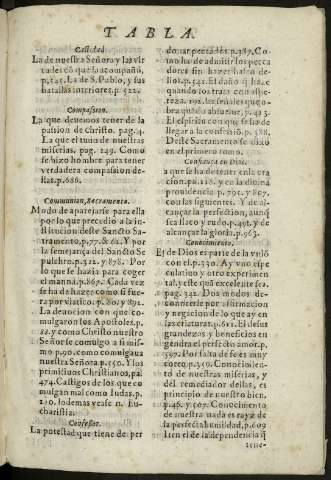 TABLA.
Castidad.
La de nuestra Señora y las vir
tudes cõ que la acompañó,
p.545. La de S. Pablo, y sus
batallas interiores, p. 522.
Compassion.
La que deuemos tener de la
passion de Christo. pag. 4.
La que el tuuo de nuestras
miserias. pag. 149. Como
se hizo hombre para tener
verdadera compassion de-
llas. p. 686.
Communion, Sacramento.
Modo de aparejarse para ella
por lo que precedio a la in-
stitucion deste Sancto Sa-
cramento, p. 77. & 62. Y por
la semejança del Sancto Se
pulchro, p. 312. y 876. Por
lo que se hazia para coger
el manna. p. 867. Cada vez
se ha de hazer como si fue-
ra por viatico. p. 80. y 891.
La deuocion con que co-
mulgaron los Apostoles, p.
22. y como Christo nuestro
Señor se comulgo a si mis-
mo p. 90. como comulgaua
nuestra Señora p. 550. Y los
primitiuos Christianos, pa.
474. Castigos de los que co
mulgan mal como Iudas. p.
210. lo demas vease n. Eu-
charistia.
Confessor.
La potestad que tiene de per
donar peccados p. 387. Co-
mo ha de admitir los pecca
dores sin hazer halso de-
llos, p. 541. El daño q̃ haze
quando los trata con aspe-
reza. 192. las señales que co-
bra quãdo absuelue, p. 423
El espiritu con que se ha de
llegar a la confessiõ p. 388.
Deste Sacramento se dixo
en el primero tomo.
Confiança en Dios.
a que se ha de tener en la ora
cion. pa. 128. y en la diuina
prouidencia p. 791. y 809.
con las siguientes. Y de al-
cançar la perfection, aunq̃
sea flaco y rudo. p. 491. y de
alcançar la gloria, p. 963.
Conocimiento.
El de Dios es parte de la vniõ
con el. p. 330. Ay vno espe
culatiuo y otro experimen
tal, y este quã excelente sea.
pag. 342. Dos modos de
conocerle por affirmacion
y negacion de lo que ay en
las criaturas, p. 611. El de sus
grandezas y beneficios en
gendra el perfecto amor. p.
397. Por falta de fe es muy
corto, p. 350. Conocimien-
to de nuestras miserias, y
del remediador dellas, es
principio de nuestro bien.
p. 46. y 507. Conocimiento
de nuestra nada es rayz de
la perfecta humildad, p. 609
Item el de la dependencia q̃
tene-